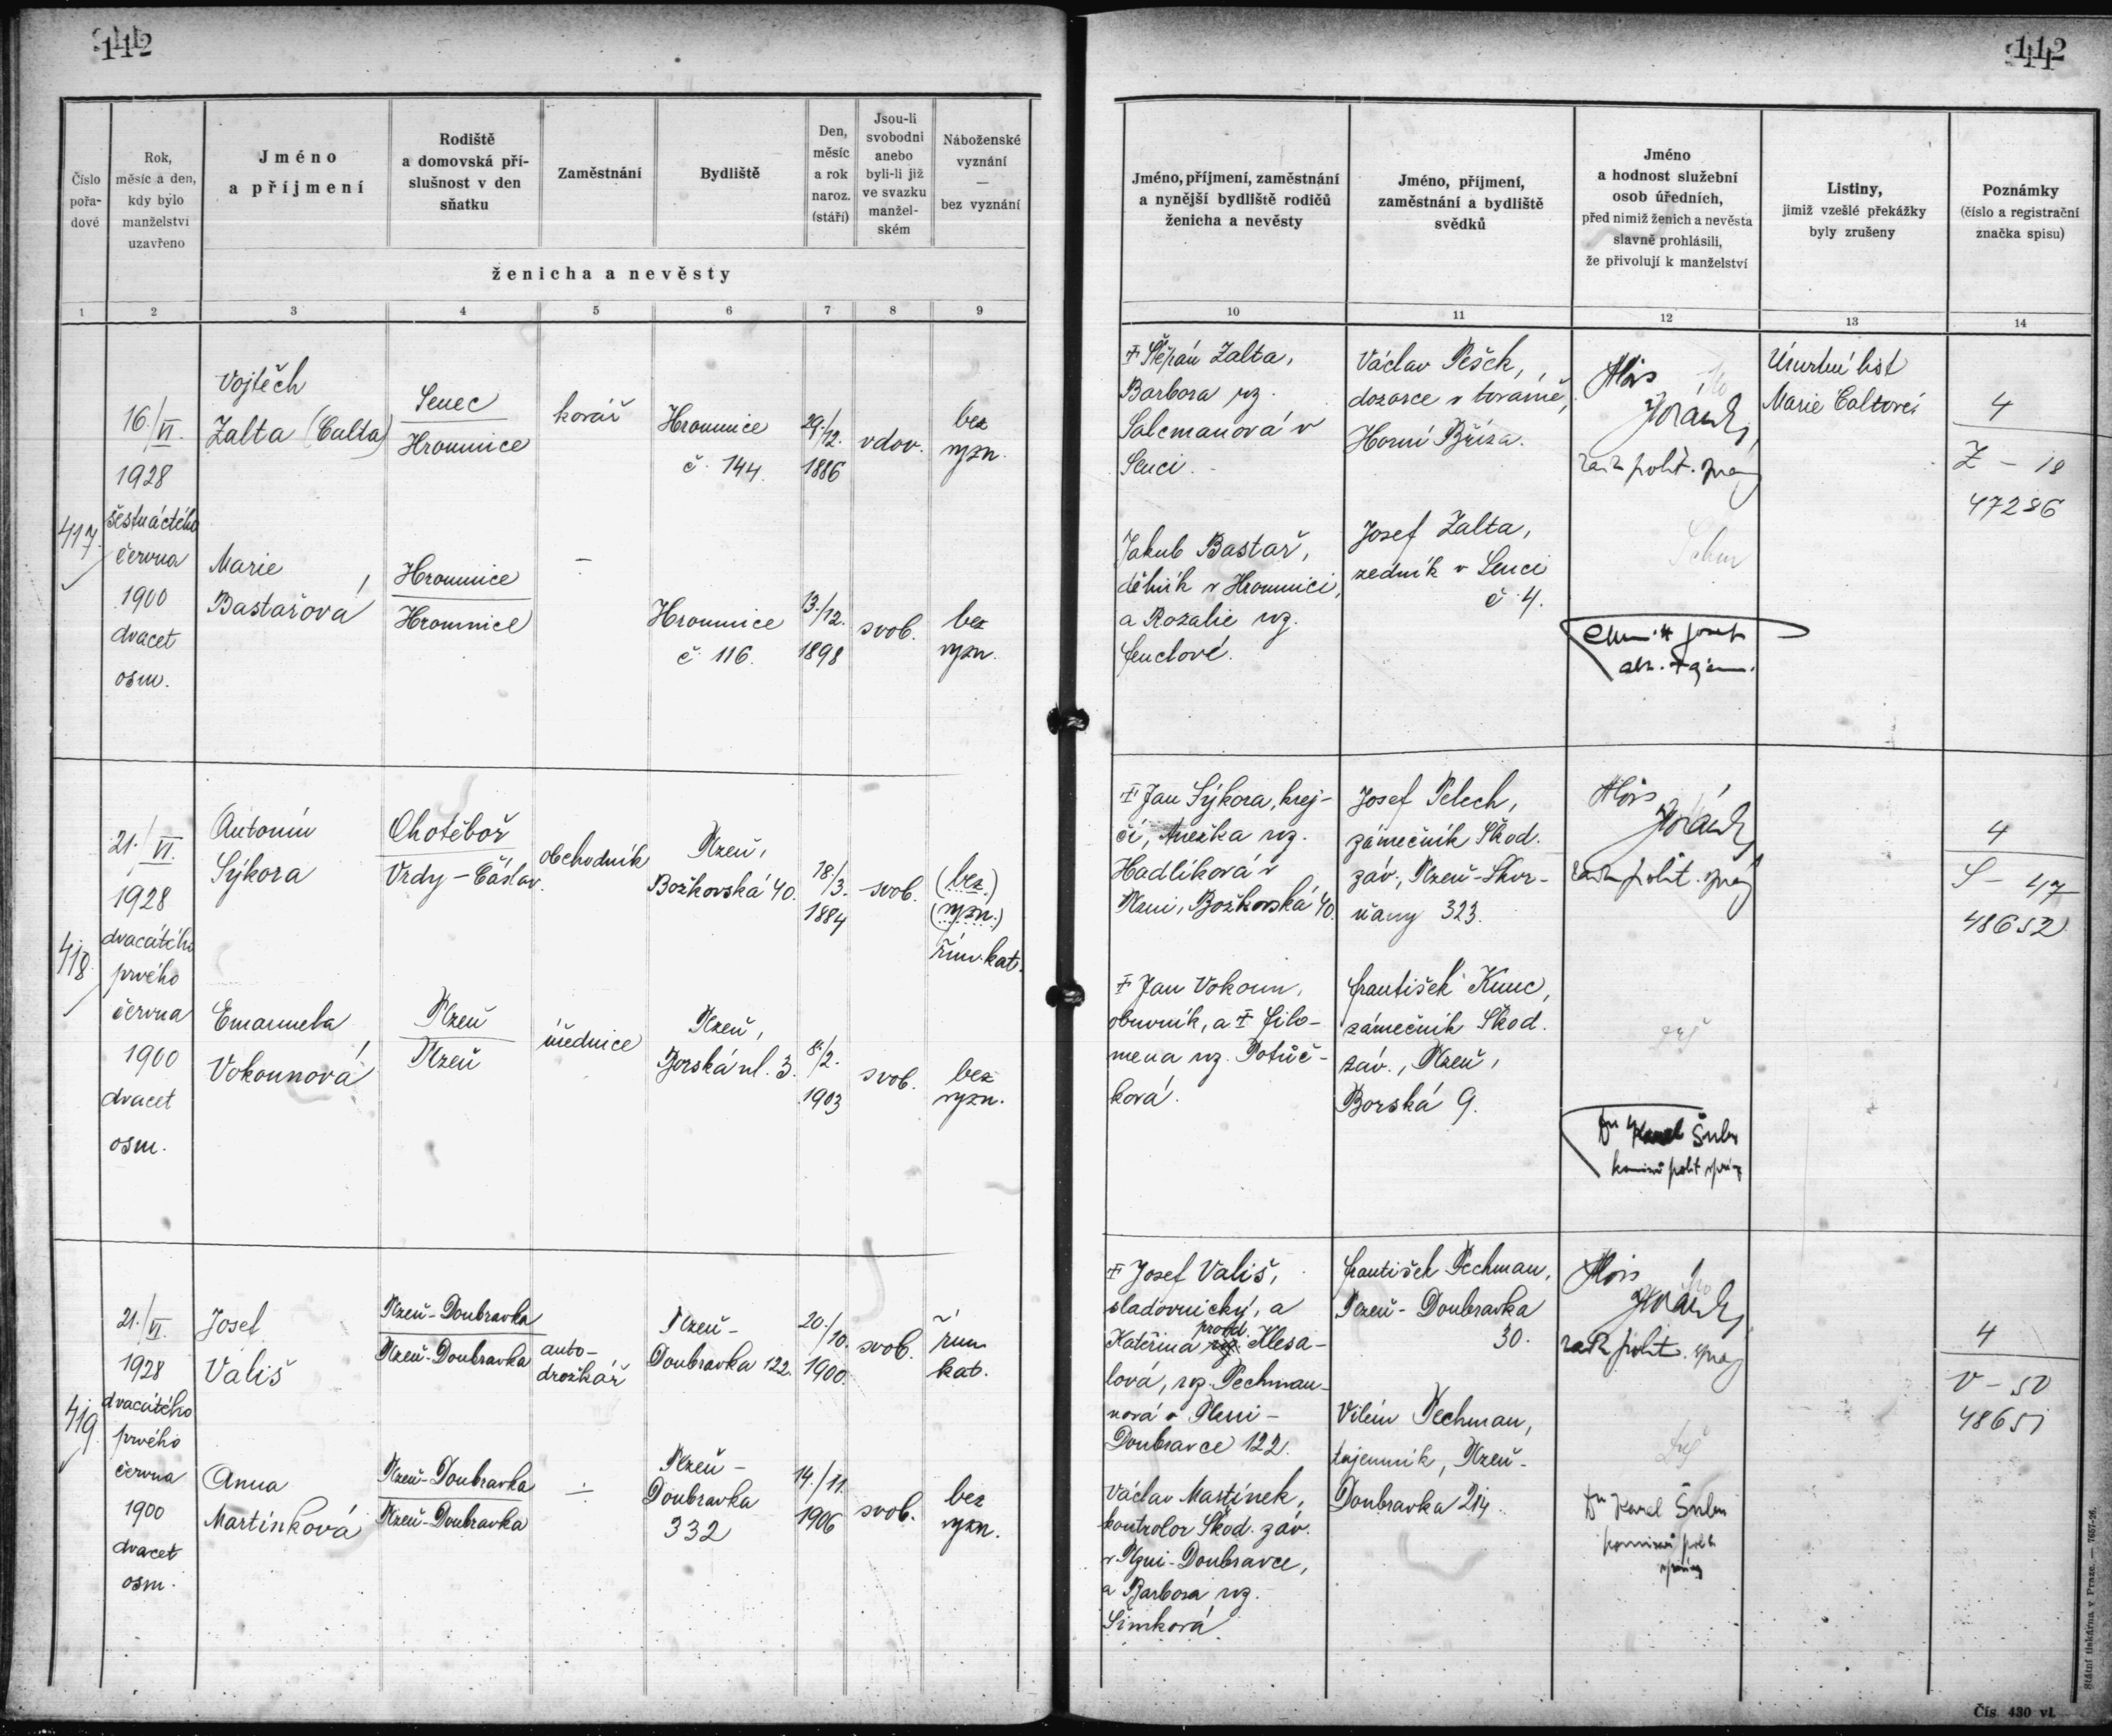 112
112
Číslo pořa- dové
Rok, měsíc a den, kdy bylo manželství uzavřeno
Jméno a příjmení
Rodiště a domovská pří- slušnost v den sňatku
Zaměstnání
Bydliště
Den, měsíc a rok naroz. (stáří)
Jsou-li svobodni anebo byli-li již ve svazku manžel- ském
Náboženské vyznání — bez vyznání
ženicha a nevěsty
1 2 3 4 5 6 7 8 9
Jméno, příjmení, zaměstnání a nynější bydliště rodičů ženicha a nevěsty
Jméno, příjmení, zaměstnání a bydliště svědků
Jméno a hodnost služební osob úředních, před nimiž ženich a nevěsta slavně prohlásili, že přivolují k manželství
Listiny, jimiž vzešlé překážky byly zrušeny
Poznámky (číslo a registrační značka spisu)
10 11 12 13 14
417.
16./VI.
1928
šestnáctého
června
1900
dvacet
osm.
Vojtěch
Žalta (Calta)
Senec
Hromnice
kovář
Hromnice
č. 144.
29./12.
1886
vdov.
bez
vyzn.
Marie
Bastařová
Hromnice
Hromnice
—
Hromnice
č. 116.
13./12.
1898
svob.
bez
vyzn.
‡ Štěpán Žalta,
Barbora roz.
Salcmanová v
Senci.
Jakub Bastař,
dělník v Hromnici,
a Rozalie roz.
Václav Pešek,
dozorce v továrně,
Horní Bříza.
Josef Žalta,
zedník v Senci
č. 4.
Alois
rada polit. správy
Úmrtní list
Marie Caltové
4
Z – 18
47286
418.
21./VI.
1928
dvacátého
prvého
června
1900
dvacet
osm.
Antonín
Sýkora
Chotěboř
Vrdy – Čáslav.
obchodník
Plzeň,
Božkovská 40.
18./3.
1884
svob.
(bez)
(vyzn.)
řím. kat.
Emanuela
Vokounová
Plzeň
Plzeň
úřednice
Plzeň,
Borská ul. 3.
8./2.
1903
svob.
bez
vyzn.
‡ Jan Sýkora, krej-
čí, Anežka roz.
Hadlíková v
Plzni, Božkovská 40.
‡ Jan Vokoun,
obuvník, a ‡ Filo-
mena roz. Potůč-
ková.
Josef Pelech,
zámečník Škod.
záv., Plzeň-Skvr-
ňany 323.
František Kunc,
zámečník Škod.
záv., Plzeň,
Borská 9.
Alois
rada polit. správy
Dr Karel
komisař polit. správy
4
S – 47
48652
419.
21./VI.
1928
dvacátého
prvého
června
1900
dvacet
osm.
Josef
Vališ
Plzeň-Doubravka
Plzeň-Doubravka
auto-
drožkář
Plzeň-
Doubravka 122.
20./10.
1900.
svob.
řím.
kat.
Anna
Martínková
Plzeň-Doubravka
Plzeň-Doubravka
—
Plzeň-
Doubravka
332
14./11.
1906
svob.
bez
vyzn.
‡ Josef Vališ,
sladovnický, a
Kateřina provd. Klesa-
lová, roz. Pechman-
nová v Plzni-
Doubravce 122.
Václav Martínek,
kontrolor Škod. záv.
v Plzni-Doubravce,
a Barbora roz.
Šimková
František Pechman,
Plzeň - Doubravka
30.
Vilém Pechman,
tajemník, Plzeň-
Doubravka 214.
Alois
rada polit. správy
Dr Karel
komisař polit.
správy
4
V – 50
48651
Státní tiskárna v Praze. — 7657-26.
Čís. 430 vl.